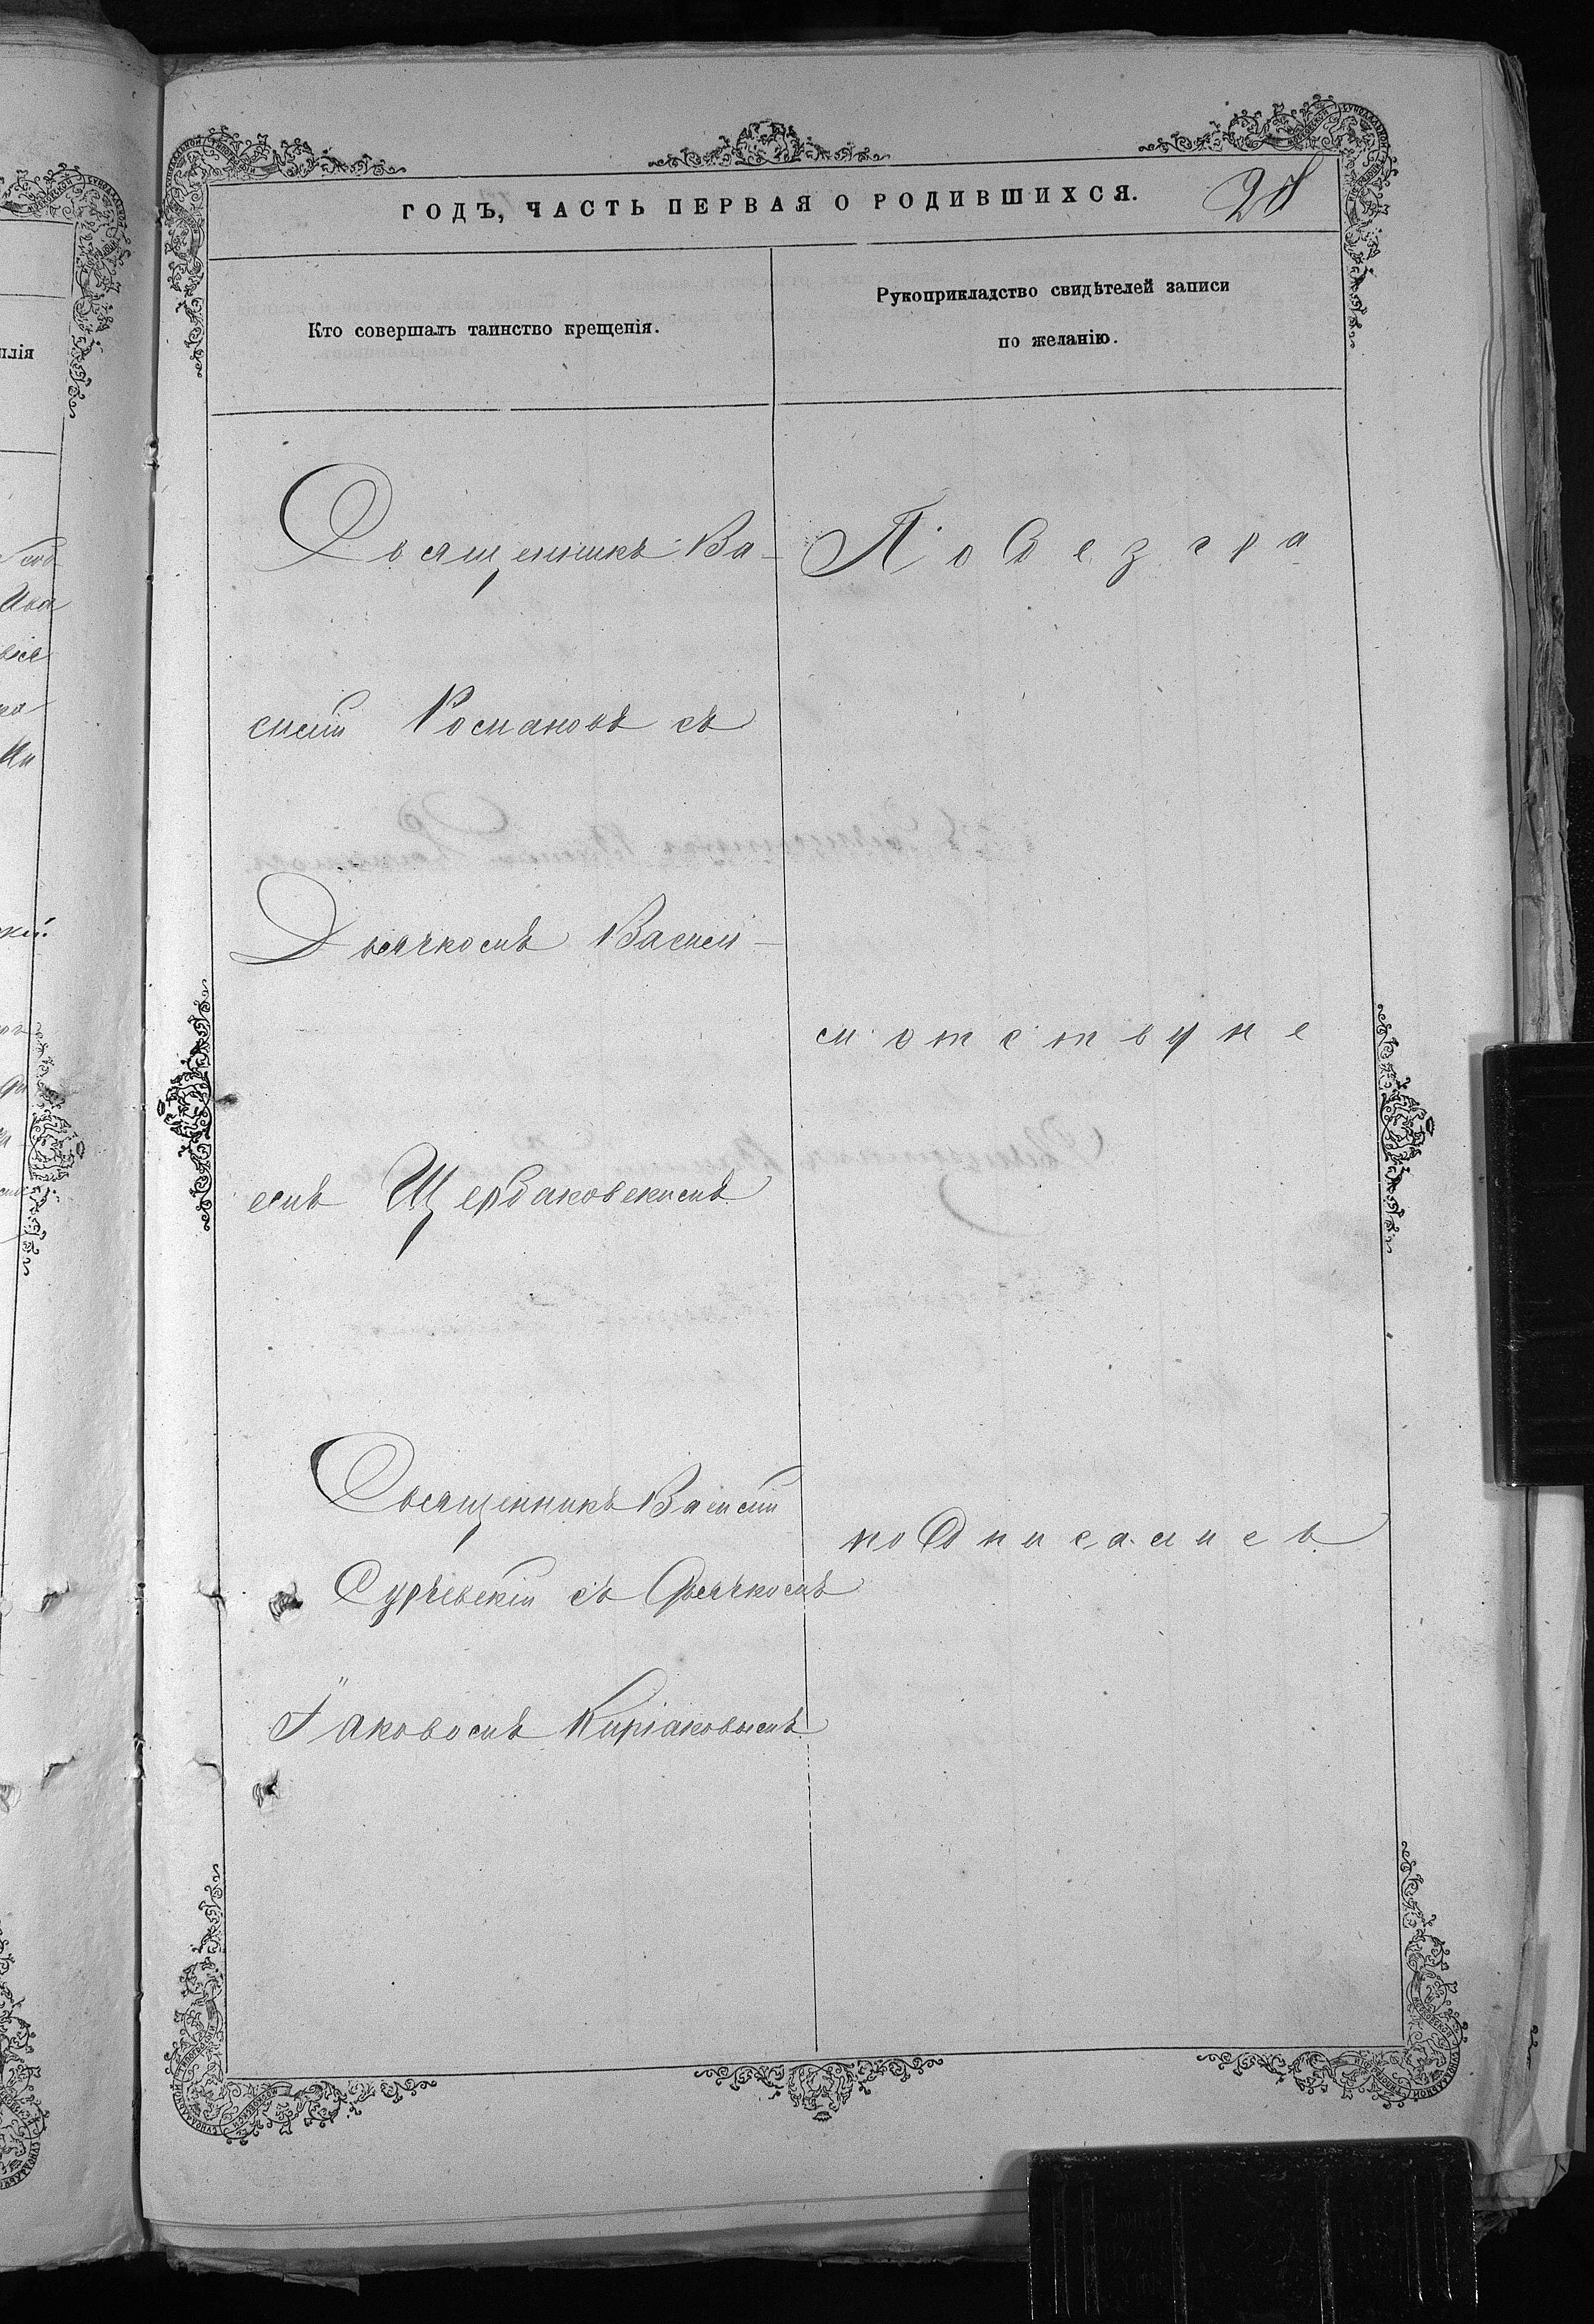 ГОДЪ, ЧАСТЬ ПЕРВАЯ О РОДИВШИХСЯ.
28
Кто совершалъ таинство крещенія.
Рукоприкладство свидѣтелей записи
по желанію.
Священникъ Ва-
силій Романовъ съ
Дьячкомъ Васили-
емъ Щербаковскимъ
Священникъ Василій
съ Дьячкомъ
Іаковомъ Киріаковымъ
По безгра
мотству не
подписались